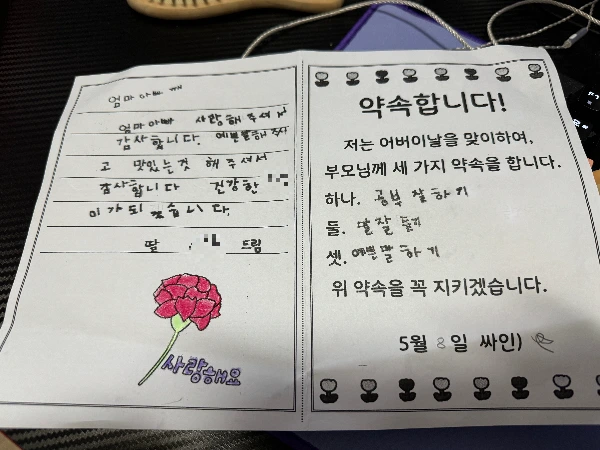 엄마 아빠 께
엄마 아빠 사랑해 주셔서
감사합니다. 예쁜말해 주시
고 맛있는것 해 주셔서
감사합니다 건강한
이가되겠습니다.
딸 드림
사랑해요
약속합니다!
저는 어버이날을 맞이하여,
부모님께 세 가지 약속을 합니다.
하나. 공부 잘하기
둘. 말잘 듣기
셋. 예쁜말 하기
위 약속을 꼭 지키겠습니다.
5월 8일 싸인)